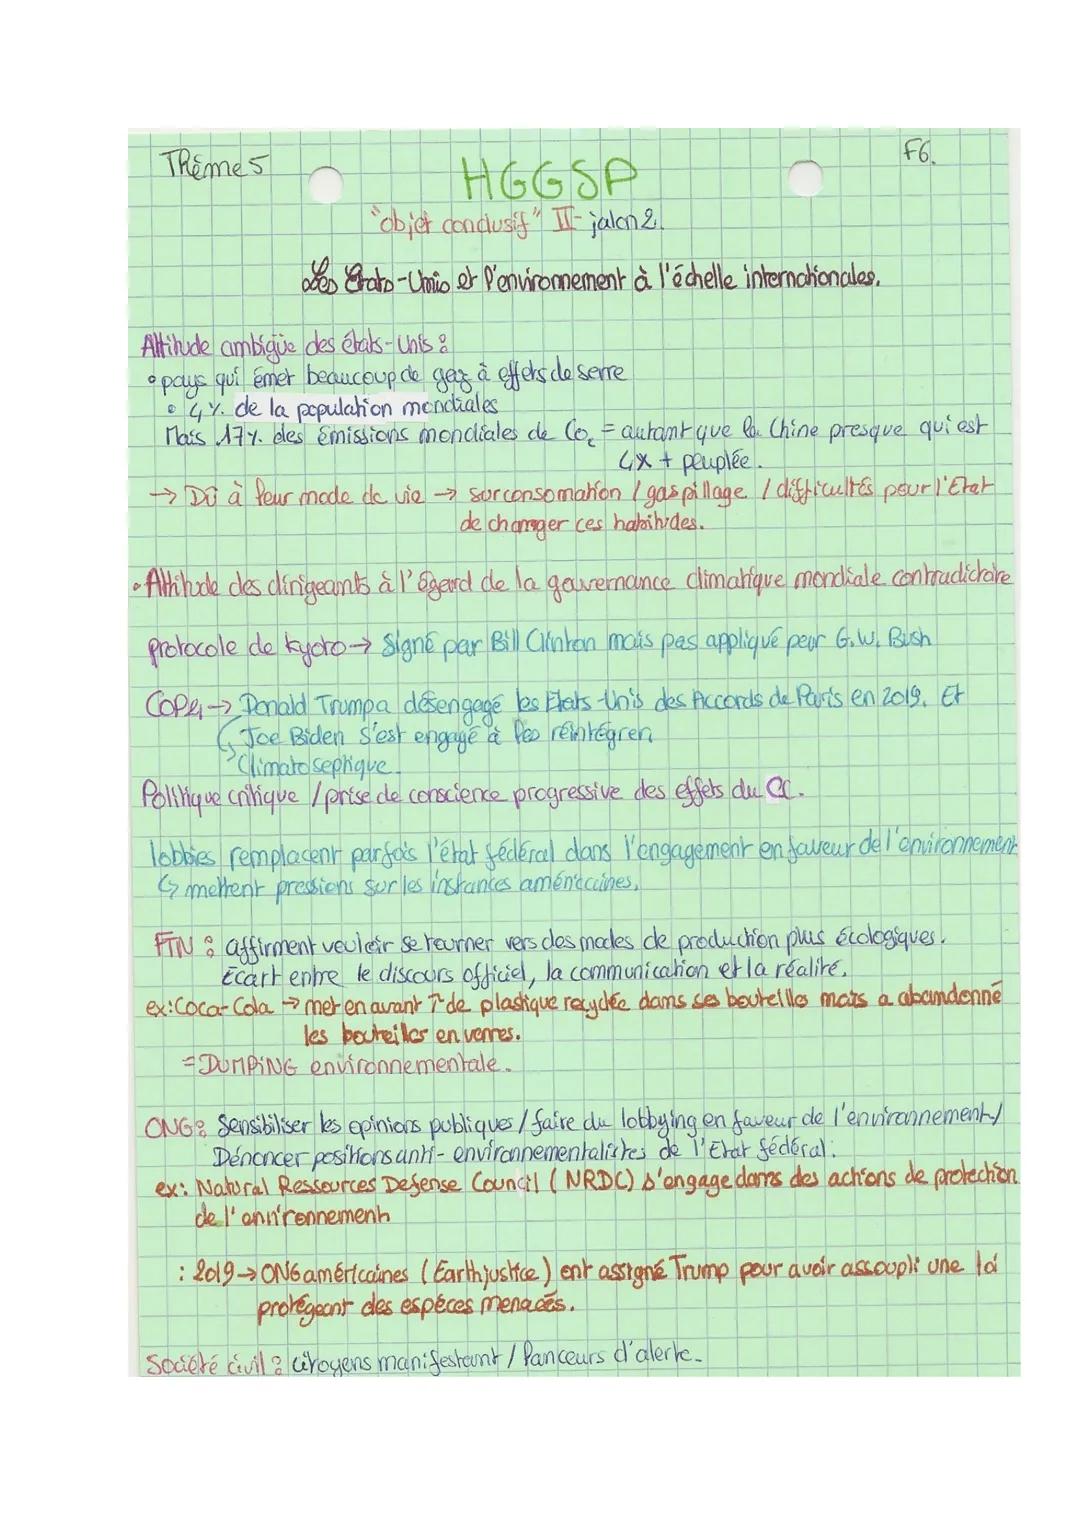 Thème 5
F6.
HGGSP
"objet conclusif" II- jalon 2.
Les Etats-Unis et l'environnement à l'échelle internationales.
Attitude ambigüe des états-Unis :
• pays qui émet beaucoup de gaz à effets de serre
• 4% de la population mondiales
Mais 17% des émissions mondiales de Co2 = autant que la Chine presque qui est
4x + peuplée.
→ Dû à leur mode de vie → surconsomation / gaspillage / difficultés pour l'Etat
de changer ces habitudes.
• Attitude des dirigeants à l'égard de la gouvernance climatique mondiale contradictoire
protocole de kyoto → signé par Bill Clinton mais pas appliqué par G.W. Bush
COP21 → Donald Trump a désengagé les Etats-Unis des Accords de Paris en 2019. Et
↳ Joe Biden s'est engagé à les réintégrer
↳ Climatoseptique.
Politique critique / prise de conscience progressive des effets du CC.
lobbies remplacent parfois l'état fédéral dans l'engagement en faveur de l'environnement
↳ mettent pressions sur les instances américaines.
FTN : affirment vouloir se tourner vers des modes de production plus écologiques.
Ecart entre le discours officiel, la communication et la réalité.
ex: Coca-Cola → met en avant ↑ de plastique recyclée dans ses bouteilles mais a abandonné
les bouteilles en verres.
= DUMPING environnementale.
ONG : Sensibiliser les opinions publiques / faire du lobbying en faveur de l'environnement /
Dénoncer positions anti-environnementalistes de l'Etat fédéral.
ex: Natural Ressources Defense Council (NRDC) s'engage dans des actions de protection
de l'environnement
: 2019 → ONG américaines (Earthjustice) ont assigné Trump pour avoir assoupli une loi
protégeant des espèces menacés.
Société civil : citoyens manifestant / lanceurs d'alerte.